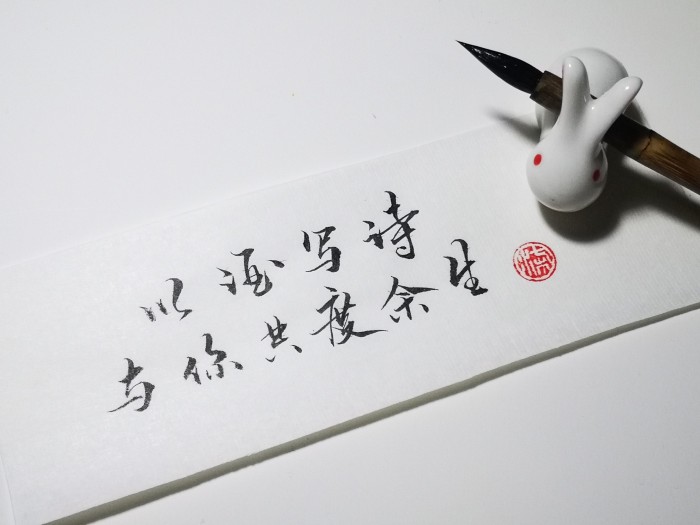 以酒写诗
与你共度余生